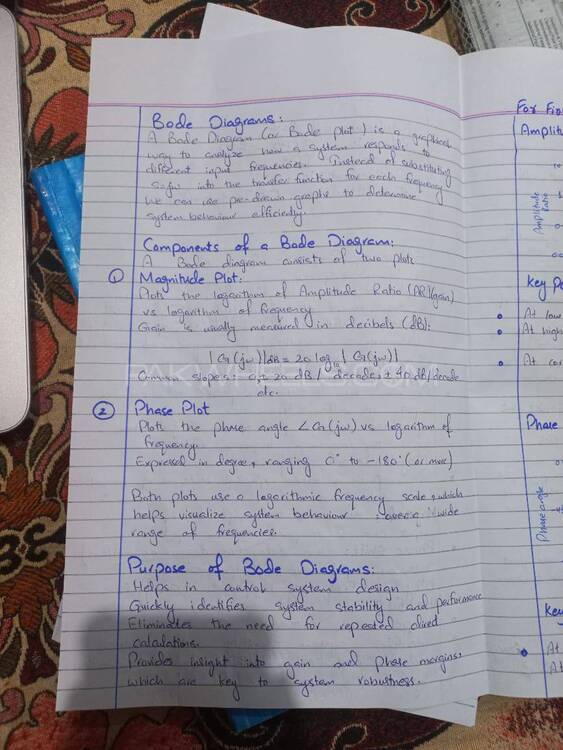 Bode Diagrams:
A Bode Diagram (or Bode plot) is a graphical
way to analyze how a system responds to
different input frequencies. Instead of substituting
s=jw into the transfer function for each frequency
we can use pre-drawn graphs to determine
system behaviour efficiently.
Components of a Bode Diagram:
A Bode diagram consists of two plots
① Magnitude Plot:
Plots the logarithm of Amplitude Ratio (AR)(gain)
vs logarithm of frequency
Gain is usually measured in decibels (dB):
|G(jw)|dB = 20 log10 |G(jw)|
Common slopes: 0, ± 20 dB/decade, ± 40 dB/decade
etc.
② Phase Plot
Plots the phase angle ∠G(jw) vs logarithm of
frequency.
Expressed in degree, ranging 0° to -180° (or more)
Both plots use a logarithmic frequency scale, which
helps visualize system behaviour over a wide
range of frequencies.
Purpose of Bode Diagrams:
Helps in control system design
Quickly identifies system stability and performance
Eliminates the need for repeated
calculations.
Provides insight into gain and phase margins,
which are key to system robustness.
For Fir
Amplitu
Amplitude
Ratio
Key Po
At low
At high
At cor
Phase
Phase angle
Key
At
At
PAKWHEELS.COM